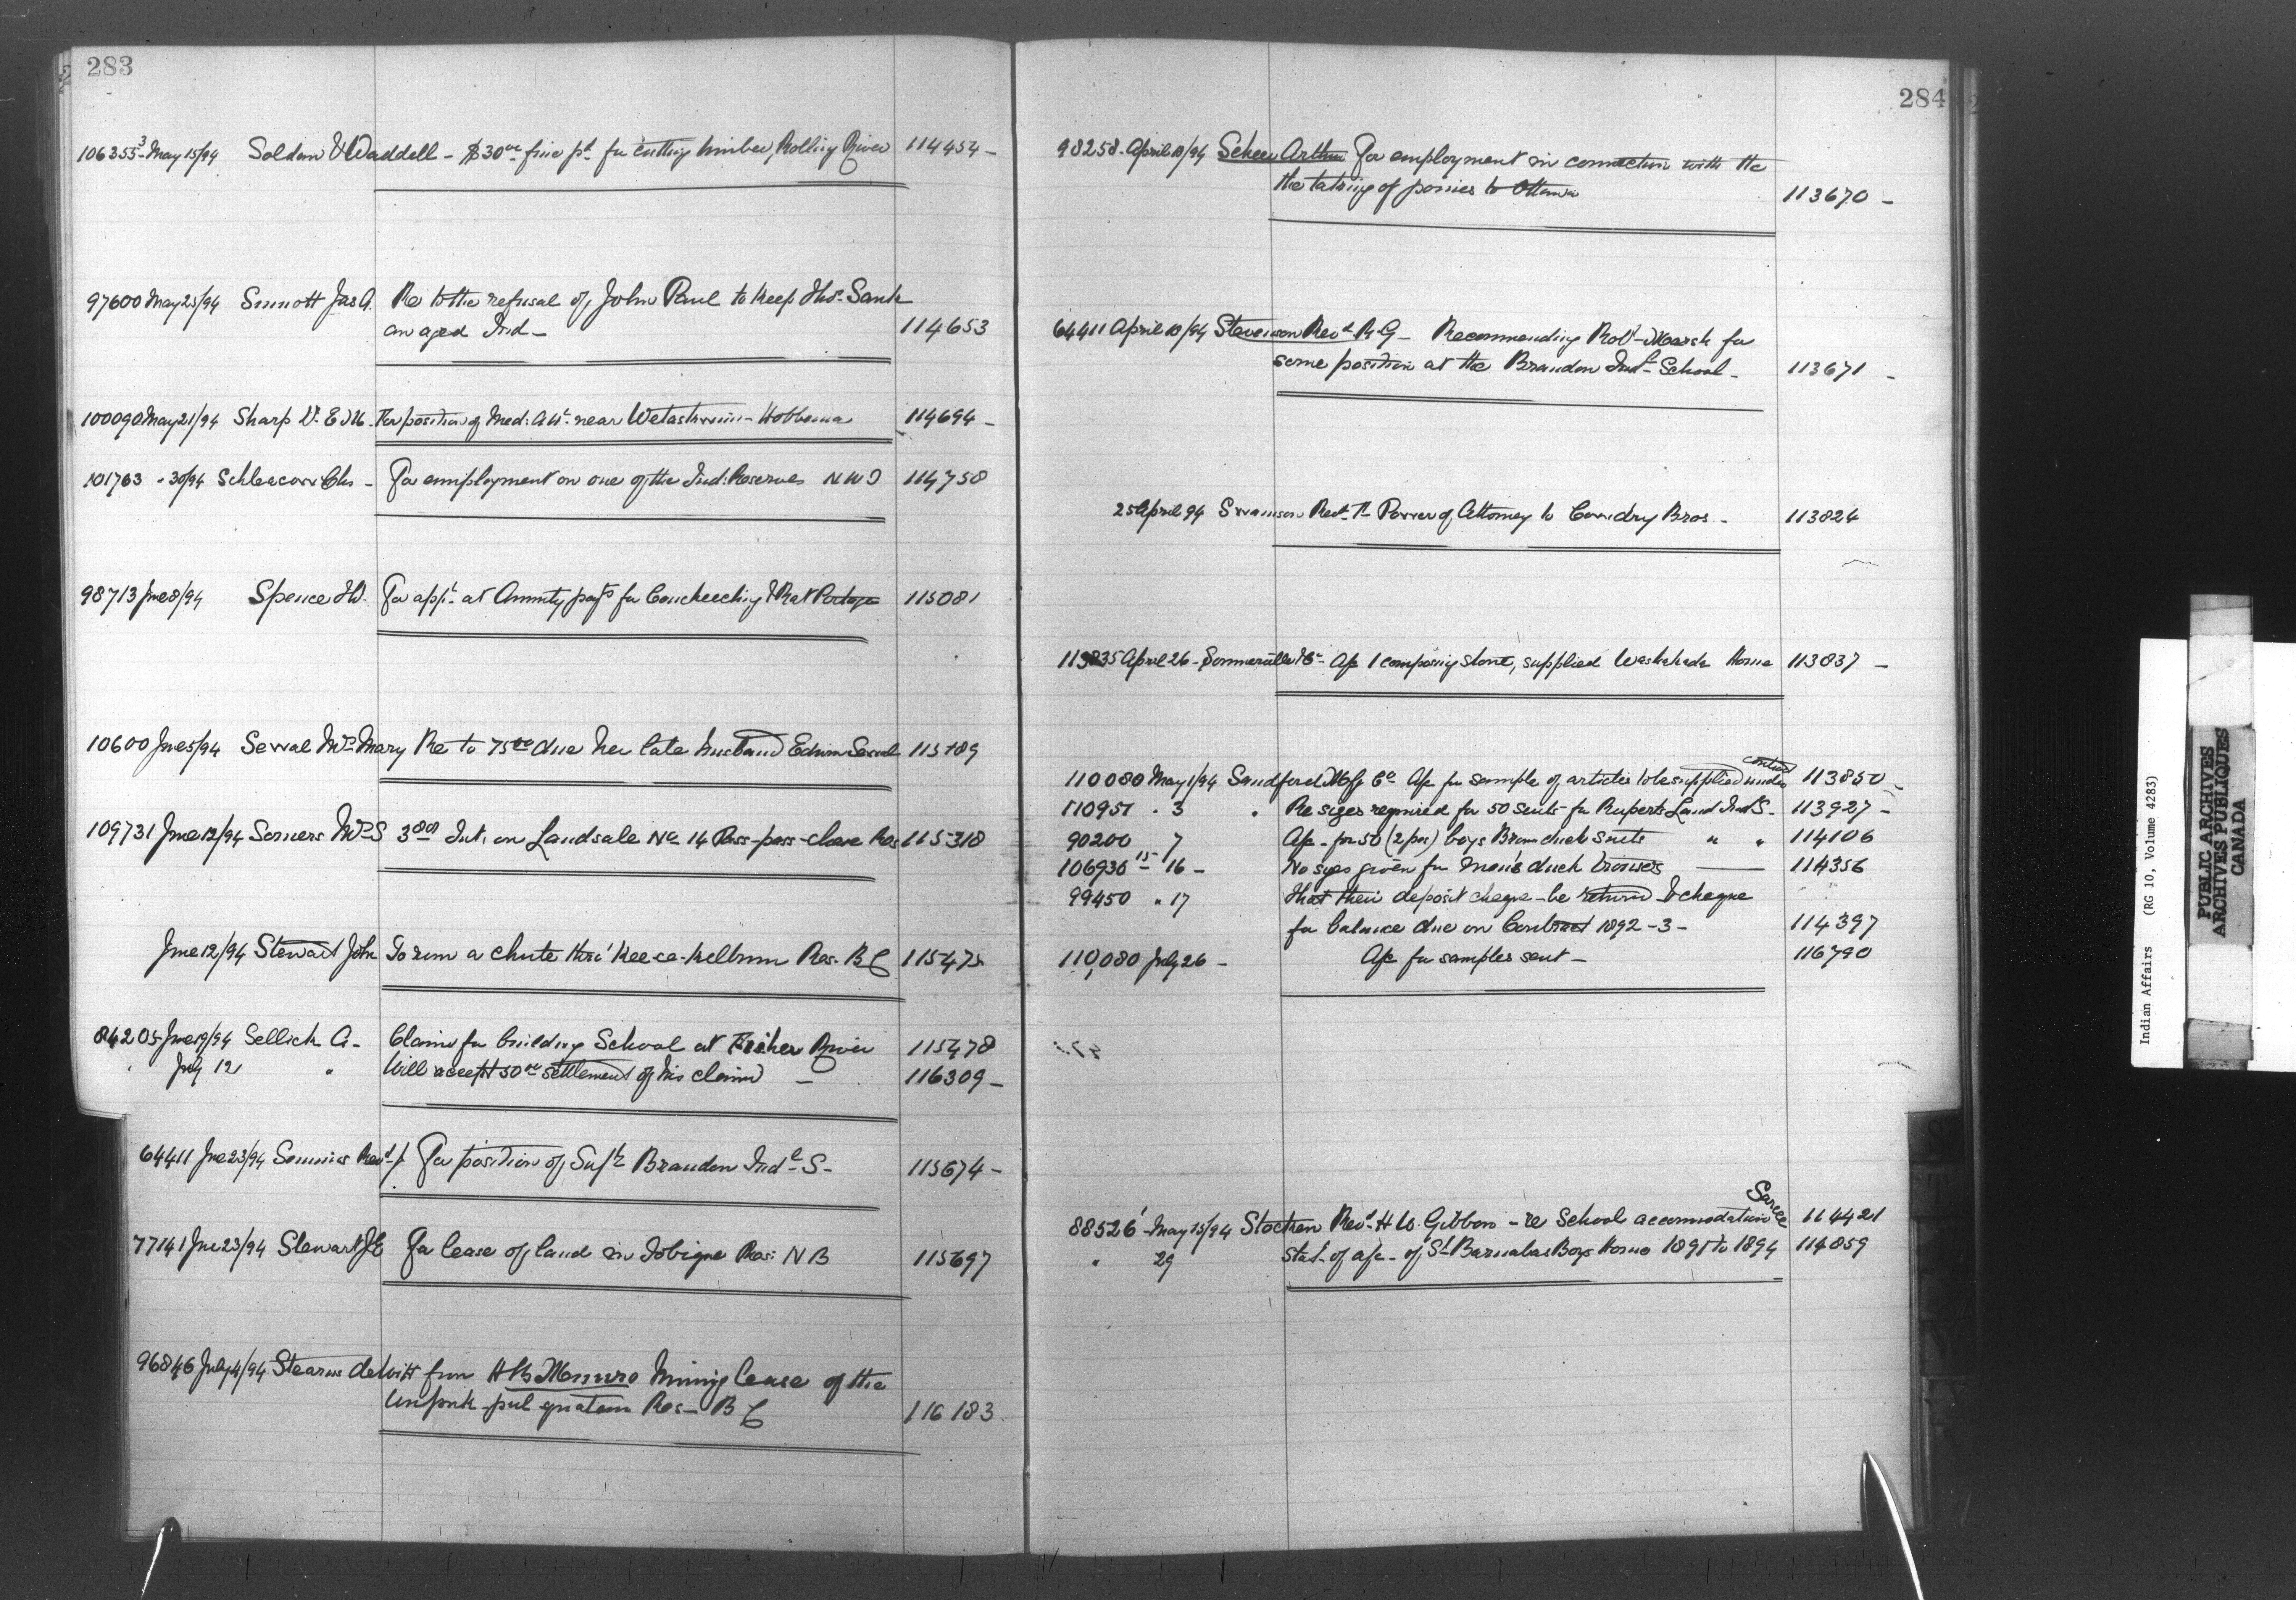 283
106355-3 May 15/94 Soldan & Waddell - $30.00 fine pd for cutting timber, Rolling River 114454 -
97600 May 25/94 Sinnott Jas A. Re to the refusal of John Paul to keep Thos Sank
an aged Ind - 114653
100090 May 21/94 Sharp Dr. E M - For position of Med: Att near Wetaskiwin - Hobbema 114694 -
101763 " 30/94 Chs - For employment on one of the Ind: Reserves N W T 114758
98713 June 8/94 Spence For appt. at Annuity payts for Coucheeching & Rat Portage 115081
10600 June 5/94 Sewal Mrs Mary Re to 75.00 due her late husband Edwin Sewal 115189
109731 June 12/94 Somers Mrs S 3.80 Int. on Landsale No 14 Pass-pass-chase Res 115318
June 12/94 Stewart John To run a chute thro' Res. B C 115475
84205 June 19/94 Sellick A - Claim for building School at Fisher River 115478
" July 12 " Will accept 50.00 settlement of his claim - 116309 -
64411 June 23/94 Semmens Revd J. For position of Supt Brandon Indl S - 115674 -
77141 June 23/94 Stewart J E For lease of land in Tobique Res: N B 115697
96846 July 4/94 Stearns dewitt from H B Munro Mining lease of the
Res - B C 116183
284
98258 - April 10/94 Arthur For employment in connection with the
the taking of ponies to Ottawa 113670 -
64411 April 10/94 Stevenson Revd R. G - Recommending Robt Marsh for
some position at the Brandon Indl School - 113671 -
25 April 94 Swanson Power of Attorney to Cowdry Bros - 113824
113835 April 26 - Sommerville & Co - A/c 1 composing stone, supplied Washakada Home 113837 -
contract
110080 May 1/94 Sandford Mfg Co A/c for sample of articles to be supplied under 113850 -
110951 " 3 " Re sizes required for 50 suits for Ruperts Land Indl S - 113927 -
90200 7 A/c - for 50 (2 pcs) boys Brown duck suits " " 114106
106936-15 16 - No sizes given for Men's duck trousers 114356
99450 " 17 That their deposit cheque - be returned & cheque
for balance due on Contract 1892-3 - 114397
110,080 July 26 - A/c for samples sent - 116790
Sarcee
88526-1 May 15/94 Stocken Revd H W. Gibbon - re School accommodation 114421
" 29 Stat. of a/c - of St Barnabas Boys Home 1891 to 1894 114859
Indian Affairs (RG 10, Volume 4283)
PUBLIC ARCHIVES
ARCHIVES PUBLIQUES
CANADA